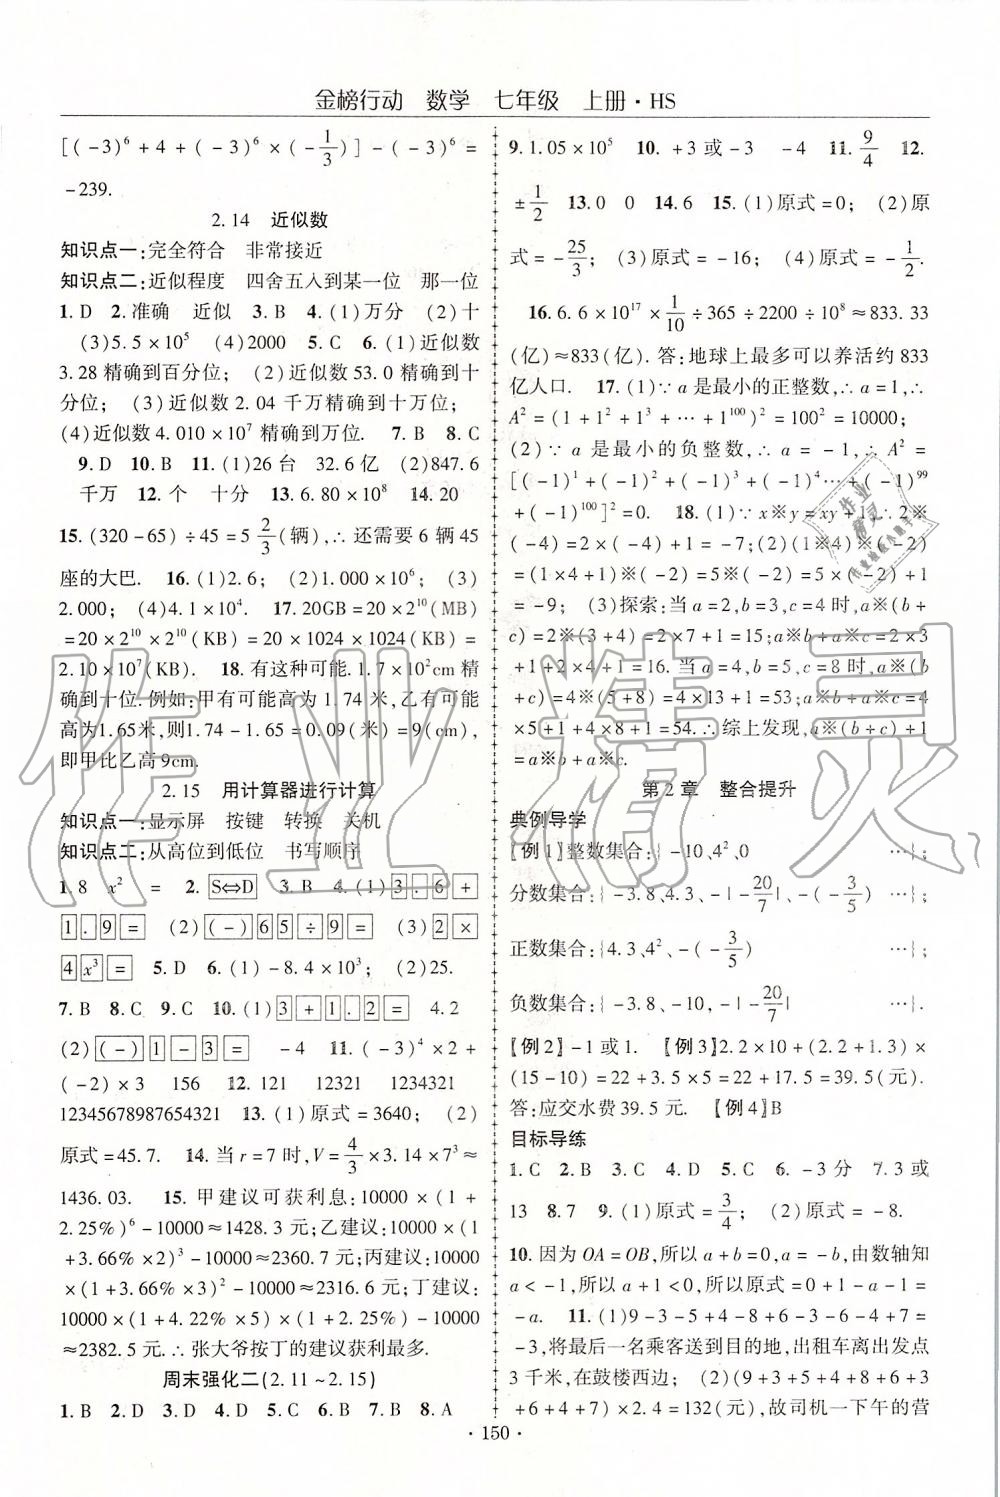 金榜行动 数学 七年级 上册·HS
[(-3)⁶+4+(-3)⁶×(-1/3)]-(-3)⁶=
-239.
2.14 近似数
知识点一:完全符合 非常接近
知识点二:近似程度 四舍五入到某一位 那一位
1.D 2.准确 近似 3.B 4.(1)万分 (2)十
(3)5.5×10⁵ (4)2000 5.C 6.(1)近似数
3.28精确到百分位; (2)近似数53.0精确到十
分位; (3)近似数2.04千万精确到十万位;
(4)近似数4.010×10⁷精确到万位. 7.B 8.C
9.D 10.B 11.(1)26台 32.6亿 (2)847.6
千万 12.个 十分 13.6.80×10⁸ 14.20
15.(320-65)÷45=5 2/3(辆),∴还需要6辆45
座的大巴. 16.(1)2.6; (2)1.000×10⁶; (3)
2.000; (4)4.1×10⁴. 17.20GB=20×2¹⁰(MB)
=20×2¹⁰×2¹⁰(KB)=20×1024×1024(KB)=
2.10×10⁷(KB). 18.有这种可能.1.7×10²cm精
确到十位.例如:甲有可能高为1.74米,乙有可能
高为1.65米,则1.74-1.65=0.09(米)=9(cm),
即甲比乙高9cm.
2.15 用计算器进行计算
知识点一:显示屏 按键 转换 关机
知识点二:从高位到低位 书写顺序
1.8 x² = 2.S⇔D 3.B 4.(1)3.6+
1.9= (2)(-)65÷9= (3)2×
4x³= 5.D 6.(1)-8.4×10³; (2)25.
7.B 8.C 9.C 10.(1)3+1.2= 4.2
(2)(-)1-3= -4 11.(-3)⁴×2+
(-2)×3 156 12.121 12321 1234321
12345678987654321 13.(1)原式=3640; (2)
原式=45.7. 14.当r=7时,V=4/3×3.14×7³≈
1436.03. 15.甲建议可获利息:10000×(1+
2.25%)⁶-10000≈1428.3元;乙建议:10000×(1
+3.66%×2)³-10000≈2360.7元;丙建议:10000
×(1+3.66%×3)²-10000≈2316.6元;丁建议:
10000×(1+4.22%×5)×(1+2.25%)-10000
≈2382.5元.∴张大爷按丁的建议获利最多.
周末强化二(2.11~2.15)
1.B 2.D 3.D 4.D 5.B 6.D 7.B 8.A
9.1.05×10⁵ 10.+3或-3 -4 11.9/4 12.
±1/2 13.0 0 14.6 15.(1)原式=0; (2)原
式=-25/3; (3)原式=-16; (4)原式=-1/2.
16.6.6×10¹⁷×1/10÷365÷2200÷10⁸≈833.33
(亿)≈833(亿).答:地球上最多可以养活约833
亿人口. 17.(1)∵a是最小的正整数,∴a=1,∴
A²=(1+1²+1³+…+1¹⁰⁰)²=100²=10000;
(2)∵a是最小的负整数,∴a=-1,∴A²=
[(-1)¹+(-1)²+(-1)³+(-1)⁴…+(-1)⁹⁹
+(-1)¹⁰⁰]²=0. 18.(1)∵x※y=xy+1,∴2※
(-4)=2×(-4)+1=-7; (2)(1※4)※(-2)=
(1×4+1)※(-2)=5※(-2)=5×(-2)+1
=-9; (3)探索:当a=2,b=3,c=4时,a※(b+
c)=2※(3+4)=2×7+1=15;a※b+a※c=2×3
+1+2×4+1=16.当a=4,b=5,c=8时,a※(b
+c)=4※(5+8)=4×13+1=53;a※b+a※c=4
×5+1+4×8+1=54.∴综上发现,a※(b+c)+1
=a※b+a※c.
第2章 整合提升
典例导学
【例1】整数集合:{-10,4²,0 …};
分数集合:{-3.8,4.3,-|-20/7|,-(-3/5) …};
正数集合:{4.3,4²,-(-3/5) …};
负数集合:{-3.8,-10,-|-20/7| …};
【例2】-1或1. 【例3】2.2×10+(2.2+1.3)×
(15-10)=22+3.5×5=22+17.5=39.5(元).
答:应交水费39.5元. 【例4】B
目标导练
1.C 2.B 3.C 4.D 5.C 6.-3分 7.3或
13 8.7 9.(1)原式=3/4; (2)原式=-8.
10.因为OA=OB,所以a+b=0,a=-b,由数轴知
a<-1,所以a+1<0,所以原式=0+1-a-1=
-a. 11.(1)9-3-5+4-8+6-3-6-4+7=
-3,将最后一名乘客送到目的地,出租车离出发点
3千米,在鼓楼西边; (2)(9+3+5+4+8+6+3
+6+4+7)×2.4=132(元),故司机一下午的营
·150·
作业精灵
作业精灵